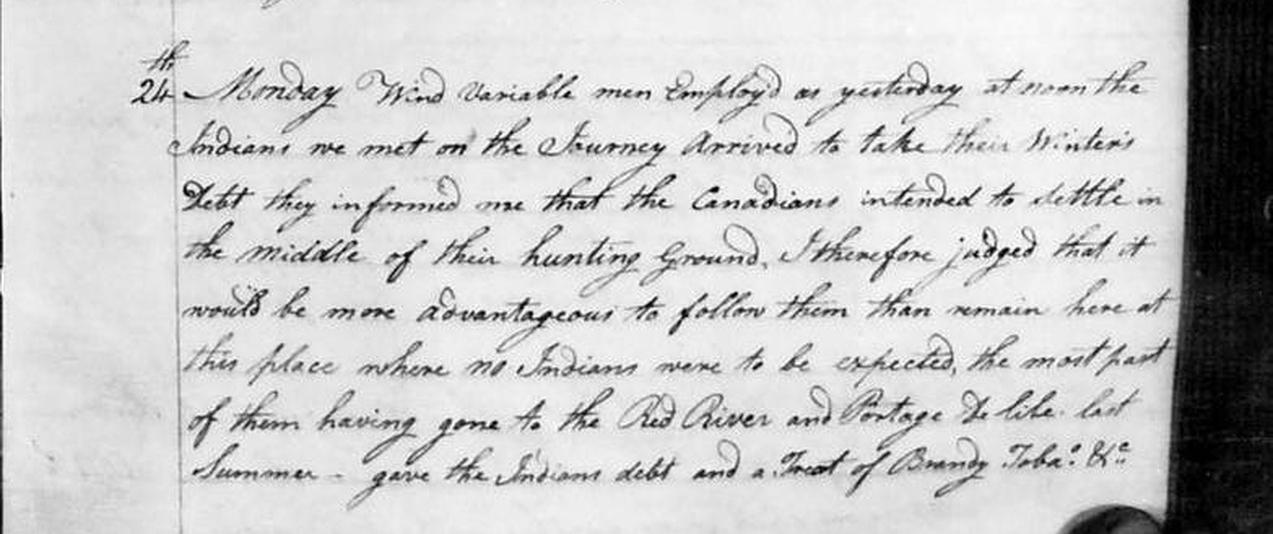 24th Monday Wind Variable men Employ'd as yesterday at noon the
Indians we met on the Journey Arrived to take their Winter's
Debt they informed me that the Canadians intended to settle in
the middle of their hunting Ground, I therefore judged that it
would be more advantageous to follow them than remain here at
this place where no Indians were to be expected, the most part
of them having gone to the Red River and Portage De lile last
Summer - gave the Indians debt and a Treat of Brandy Toba.o &c